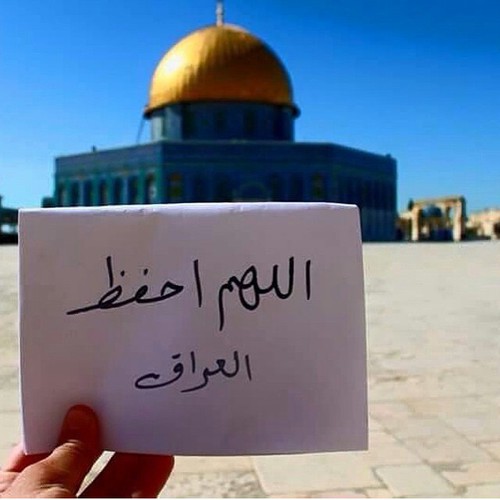 اللهم احفظ
العراق